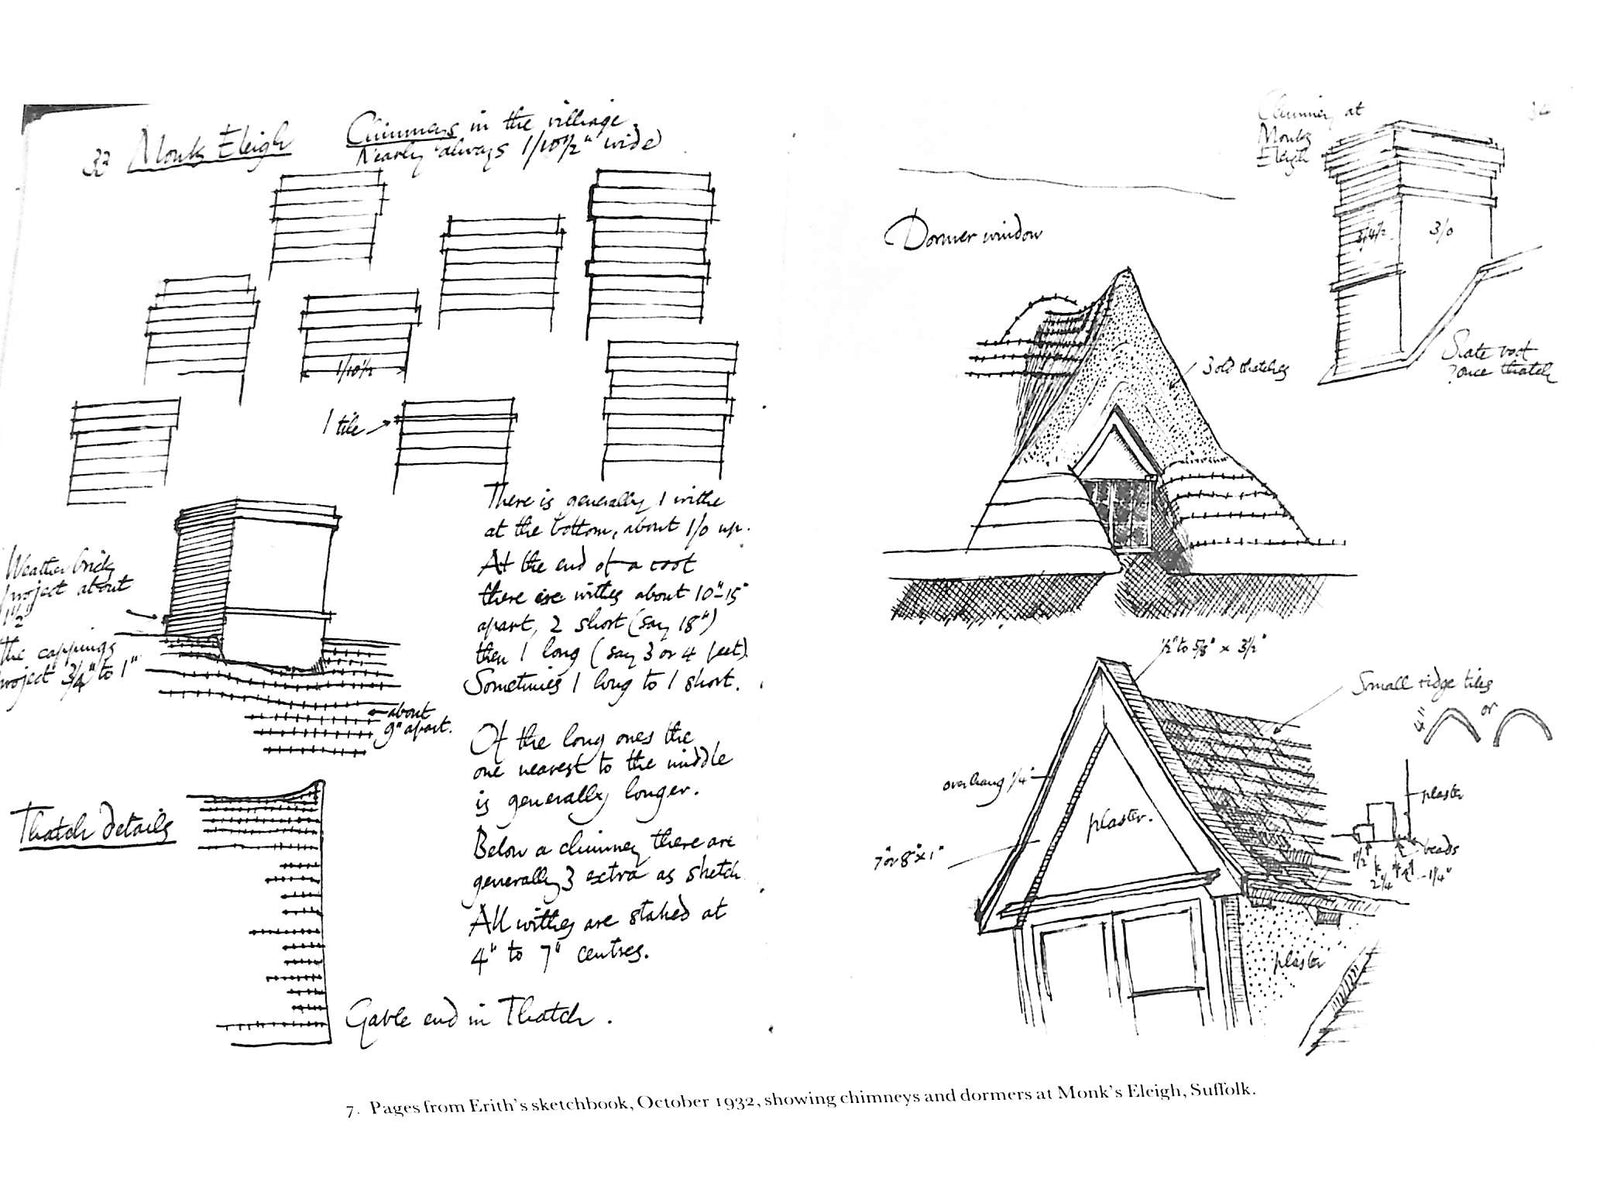 33 Monks Eleigh
Chimneys in the village.
Nearly always 1/10½" wide
1/10½
1 tile
There is generally 1 withe
at the bottom, about 1/0 up.
At the end of a roof
there are withes about 10"-15"
apart, 2 short (say 18")
then 1 long (say 3 or 4 feet)
Sometimes 1 long to 1 short.
Weather bricks
project about
1½"
The cappings
project ¾" to 1"
about
9" apart.
Of the long ones the
one nearest to the middle
is generally longer.
Below a chimney there are
generally 3 extra as sketch
All withes are staked at
4" to 7" centres.
Thatch details
Gable end in Thatch.
34
Chimney at
Monks
Eleigh
3/4½
3/0
Slate roof
? once thatch
Dormer window
3 old thatches
½" to ⅝" x 3½"
Small ridge tiles
4"
or
overhang ¼"
plaster.
7" or 8" x 1"
plaster
beads
1½"
2¼"
¼"
plaster
7. Pages from Erith's sketchbook, October 1932, showing chimneys and dormers at Monk's Eleigh, Suffolk.